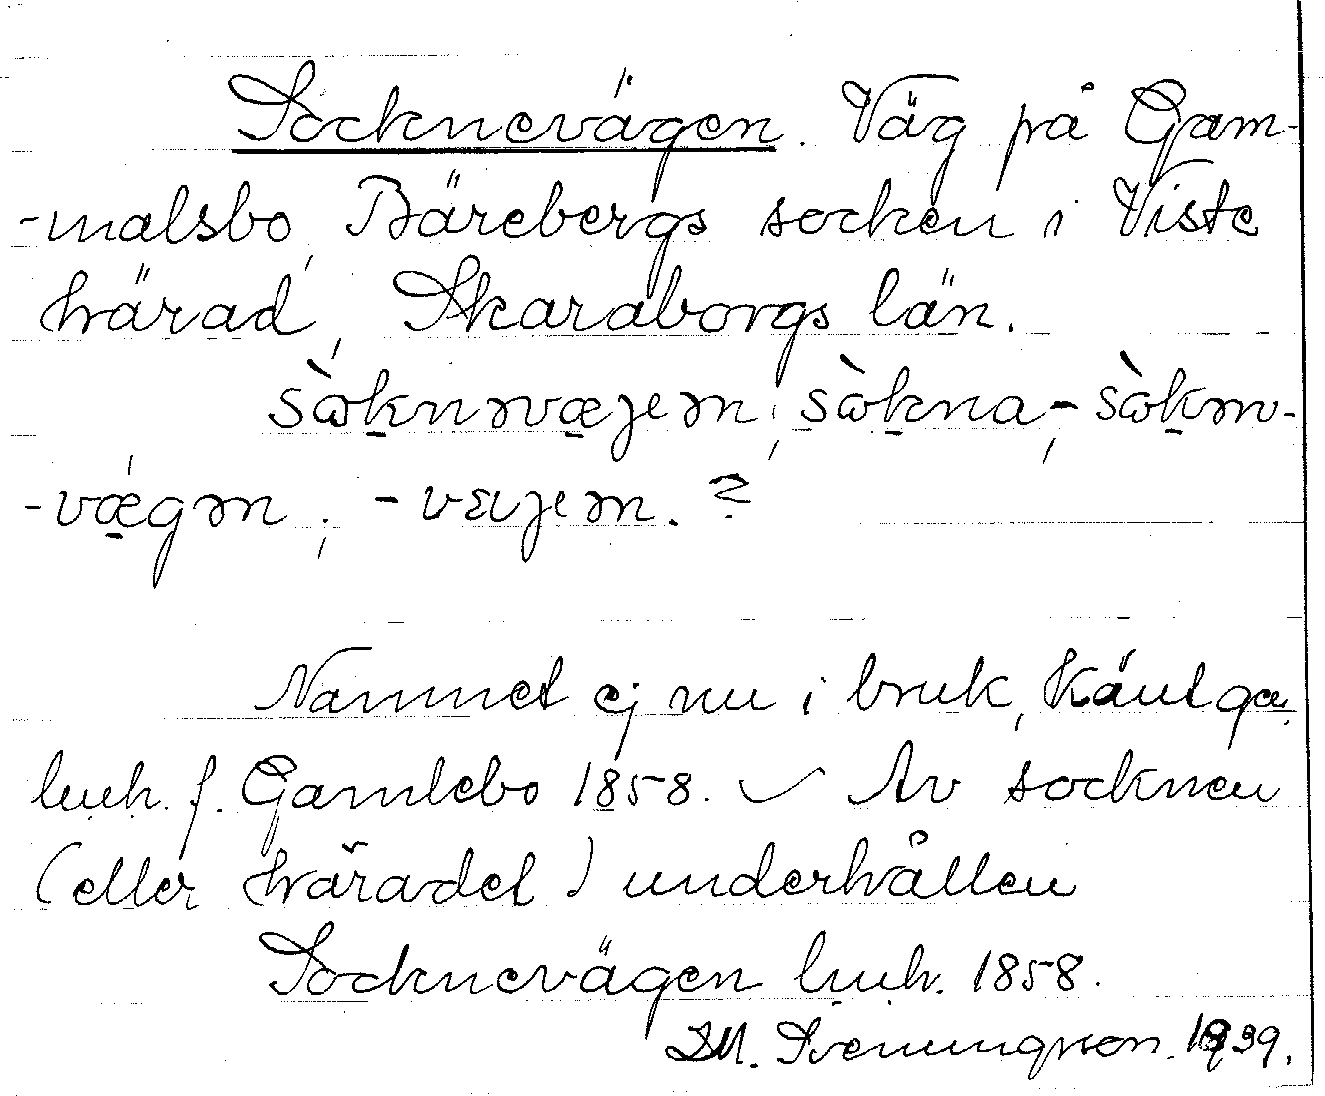 Socknevägen. Väg på Gam-
-malsbo, Bärebergs socken i Viste
härad, Skaraborgs län.
Namnet ej nu i bruk, känt ge.
lmh. f. Gamlebo 1858. ✓ Av socknen
(eller häradet) underhållen
Socknevägen lmh. 1858.
D.M. Svenungsson. 1939.